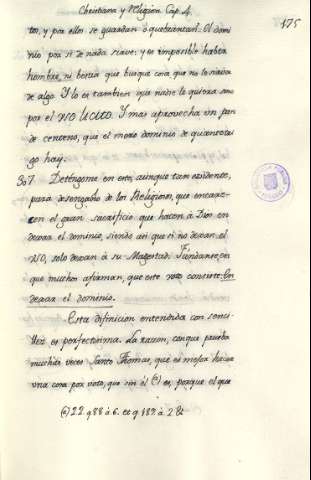 Christiana y Religion Cap. 4.
175
tos, y por ellos se guardan ó quebrantan. El domi
nio por si de nada sirve; y es imposible habra
hombre, ni bestia que busque cosa que no le sirva
de algo. Y lo es tambien que nadie lo quiera sino
por el uso licito. Y mas aprovecha un pan
de centeno, que el mero dominio de quantos tri
go hay.
307 Detengome en esto, aunque tan evidente,
para desengaño de los Religiosos, que encare-
cen el gran sacrificio que hacen á Dios en
dexar el dominio, siendo asi que si no dexan el
uso, solo dexan á su Magestad. Fundanse, en
que muchos afirman, que este voto consiste: En
dexar el dominio.
Esta difinicion entendida con senci
lléz es perfectisima. La razon, con que prueba
muchas veces Santo Thomas, que es mejor hacer
una cosa por voto, que sin él (a) es, porque el que
(a) 22 q 88 á 6. et q 189. á 2 &c